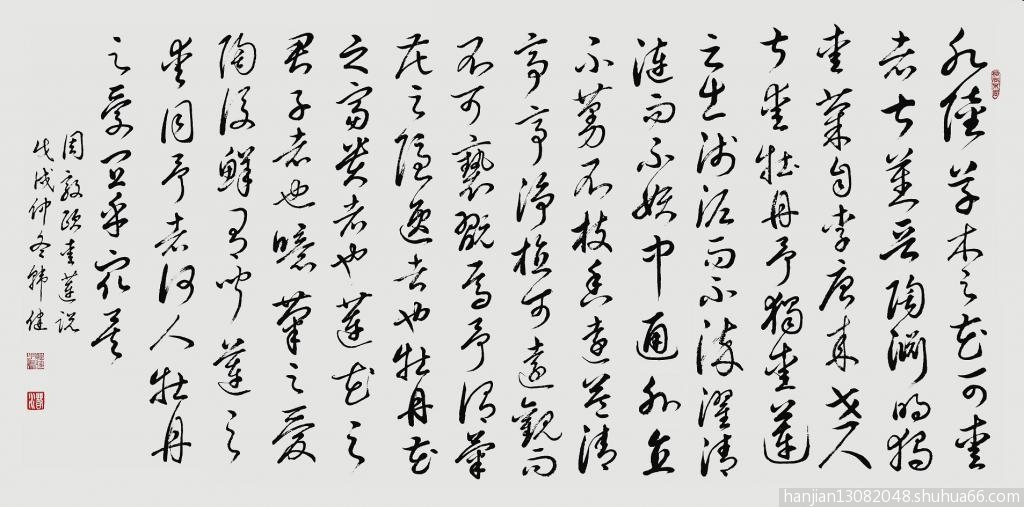 水陸草木之花可愛
者甚蕃晉陶淵明獨
愛菊自李唐來世人
甚愛牡丹予獨愛蓮
之出淤泥而不染濯清
漣而不妖中通外直
不蔓不枝香遠益清
亭亭淨植可遠觀而
不可褻翫焉予謂菊
花之隱逸者也牡丹花
之富貴者也蓮花之
君子者也噫菊之愛
陶後鮮有聞蓮之
愛同予者何人牡丹
之愛宜乎衆矣
周敦頤愛蓮説
戊戌仲冬韩健
hanjian13082048.shuhua66.com